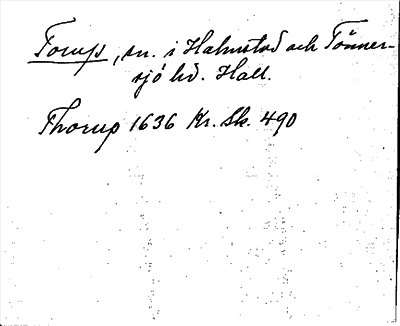 Torup, sn. i Halmstad och Tönner-
sjö hd. Hall.
Thorup 1636 Kr. Sk. 490